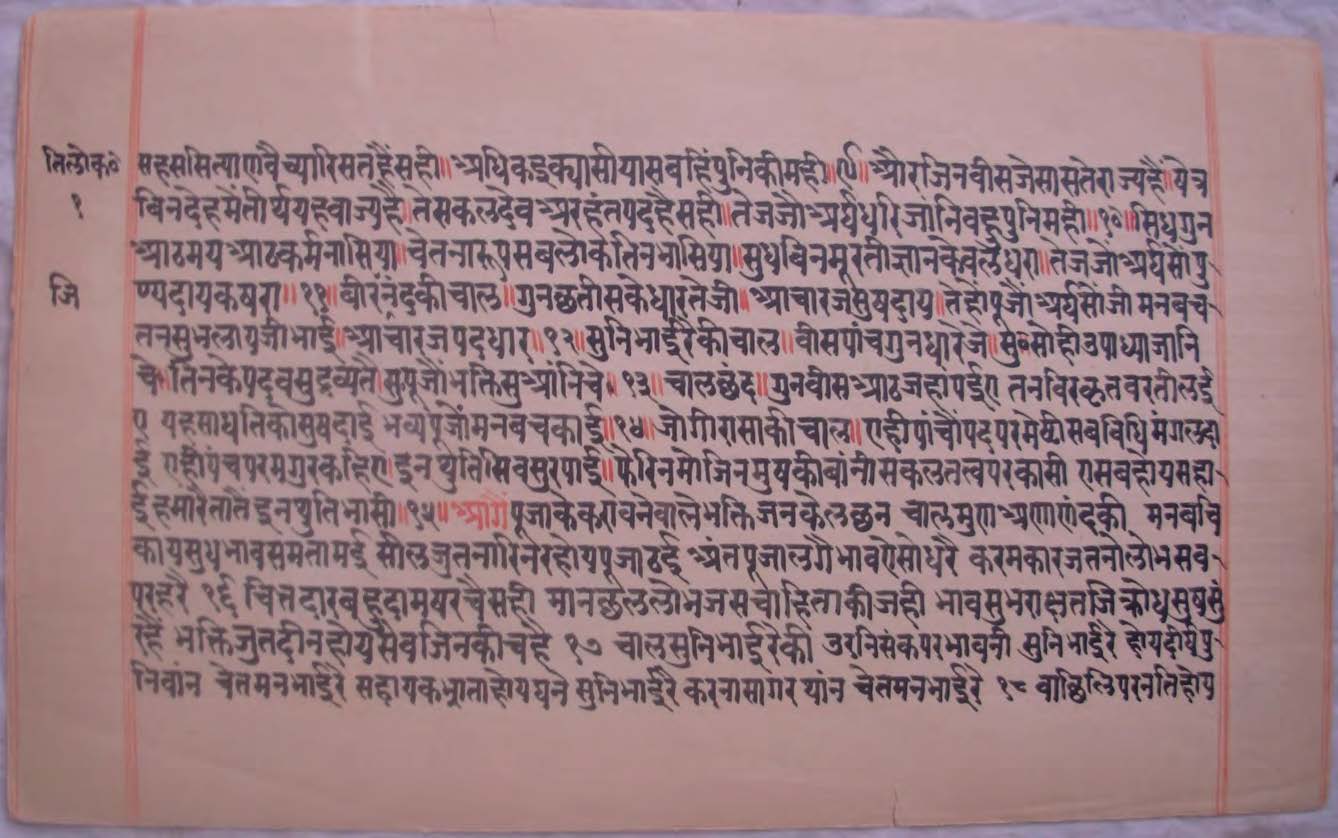 तिलोक० सहससित्याणवैच्यारिसतहैंसही॥अधिकइक्यासीयासबहिंपुनिकीमही॥९॥औरजिनवीसजेसासतेराज्यहै॥षेत्र
१ बिनदेहमेंतीर्थयहवाज्यहै॥तेसकलदेवअरहंतपदहैसही॥तेजजौंअर्घधरिजांनिवहुपुनिमही॥१०॥सिधगुन
आठमयआठकर्मनासिया॥चेतनारूपसबलोकतिनभासिया॥सुधबिनमूरतीज्ञानकेवलधरा॥तेजजोंअर्घसोंपु
जि ण्यदायकषरा॥११॥वीरंनंदकीचाल॥गुनछतीसकेधारतेजी॥आचारजसुषदाय॥तेहोंपूजौंअर्घसौंजीमनबच
तनसुभलायजीभाई॥आचारजपदधार॥१२॥सुनिभाईरेकीचाल॥वीसपांचगुनधारजे॥सु०सोहीउपाध्याजानि
चे०तिनकेपदवसुद्रव्यतैसुपूजौंभक्तिसुआंनिचे०१३॥चालछंद॥गुनवीसआठजहांपईए तनविरकृतवरतीलई
ए यहसाधतिकौसुषदाई भव्यपूजोंमनबचकाई॥१४॥जोगीरासाकीचाल॥एहीपांचौंपदपरमेष्टीसबविधिमंगलदा
ई एहीपंचपरमगुरकहिए।इनथुतिसिवसुरपाई॥फेरिनमोजिनमुषकीबांनीसकलतत्वपरकासी एसबहोयसहा
ईहमारेतातैइनथुतिभासी॥१५॥आगैंपूजाकेकरावनेवालेभक्तिजनकेलछन चालमुणअणणंदकी मनबचि
कायसुधभावसमतामई सीलजुतनारिनरहोयपूजाठई अंतपूजालगैभावऐसोधरै करमकारजतनोलोभसब
परहरै १६ चितउदारबहुदामषरचैसही मानछललोभजसचाहिताकीजही भावसुभराक्षतजिक्रोधसुषसुं
रहै भक्तिजुतदीनहोयसेवजिनकीचहै १७ चालसुनिभाईरेकी उरनिसंकपरभावनी सुनिभाईरे होयदीर्घपु
निवांन चेतमनभाईरे सहायकभ्राताहोयघने सुनिभाईरे करनासागरयांन चेतमनभाईरे १८ वांछिलिपरनतिहोय